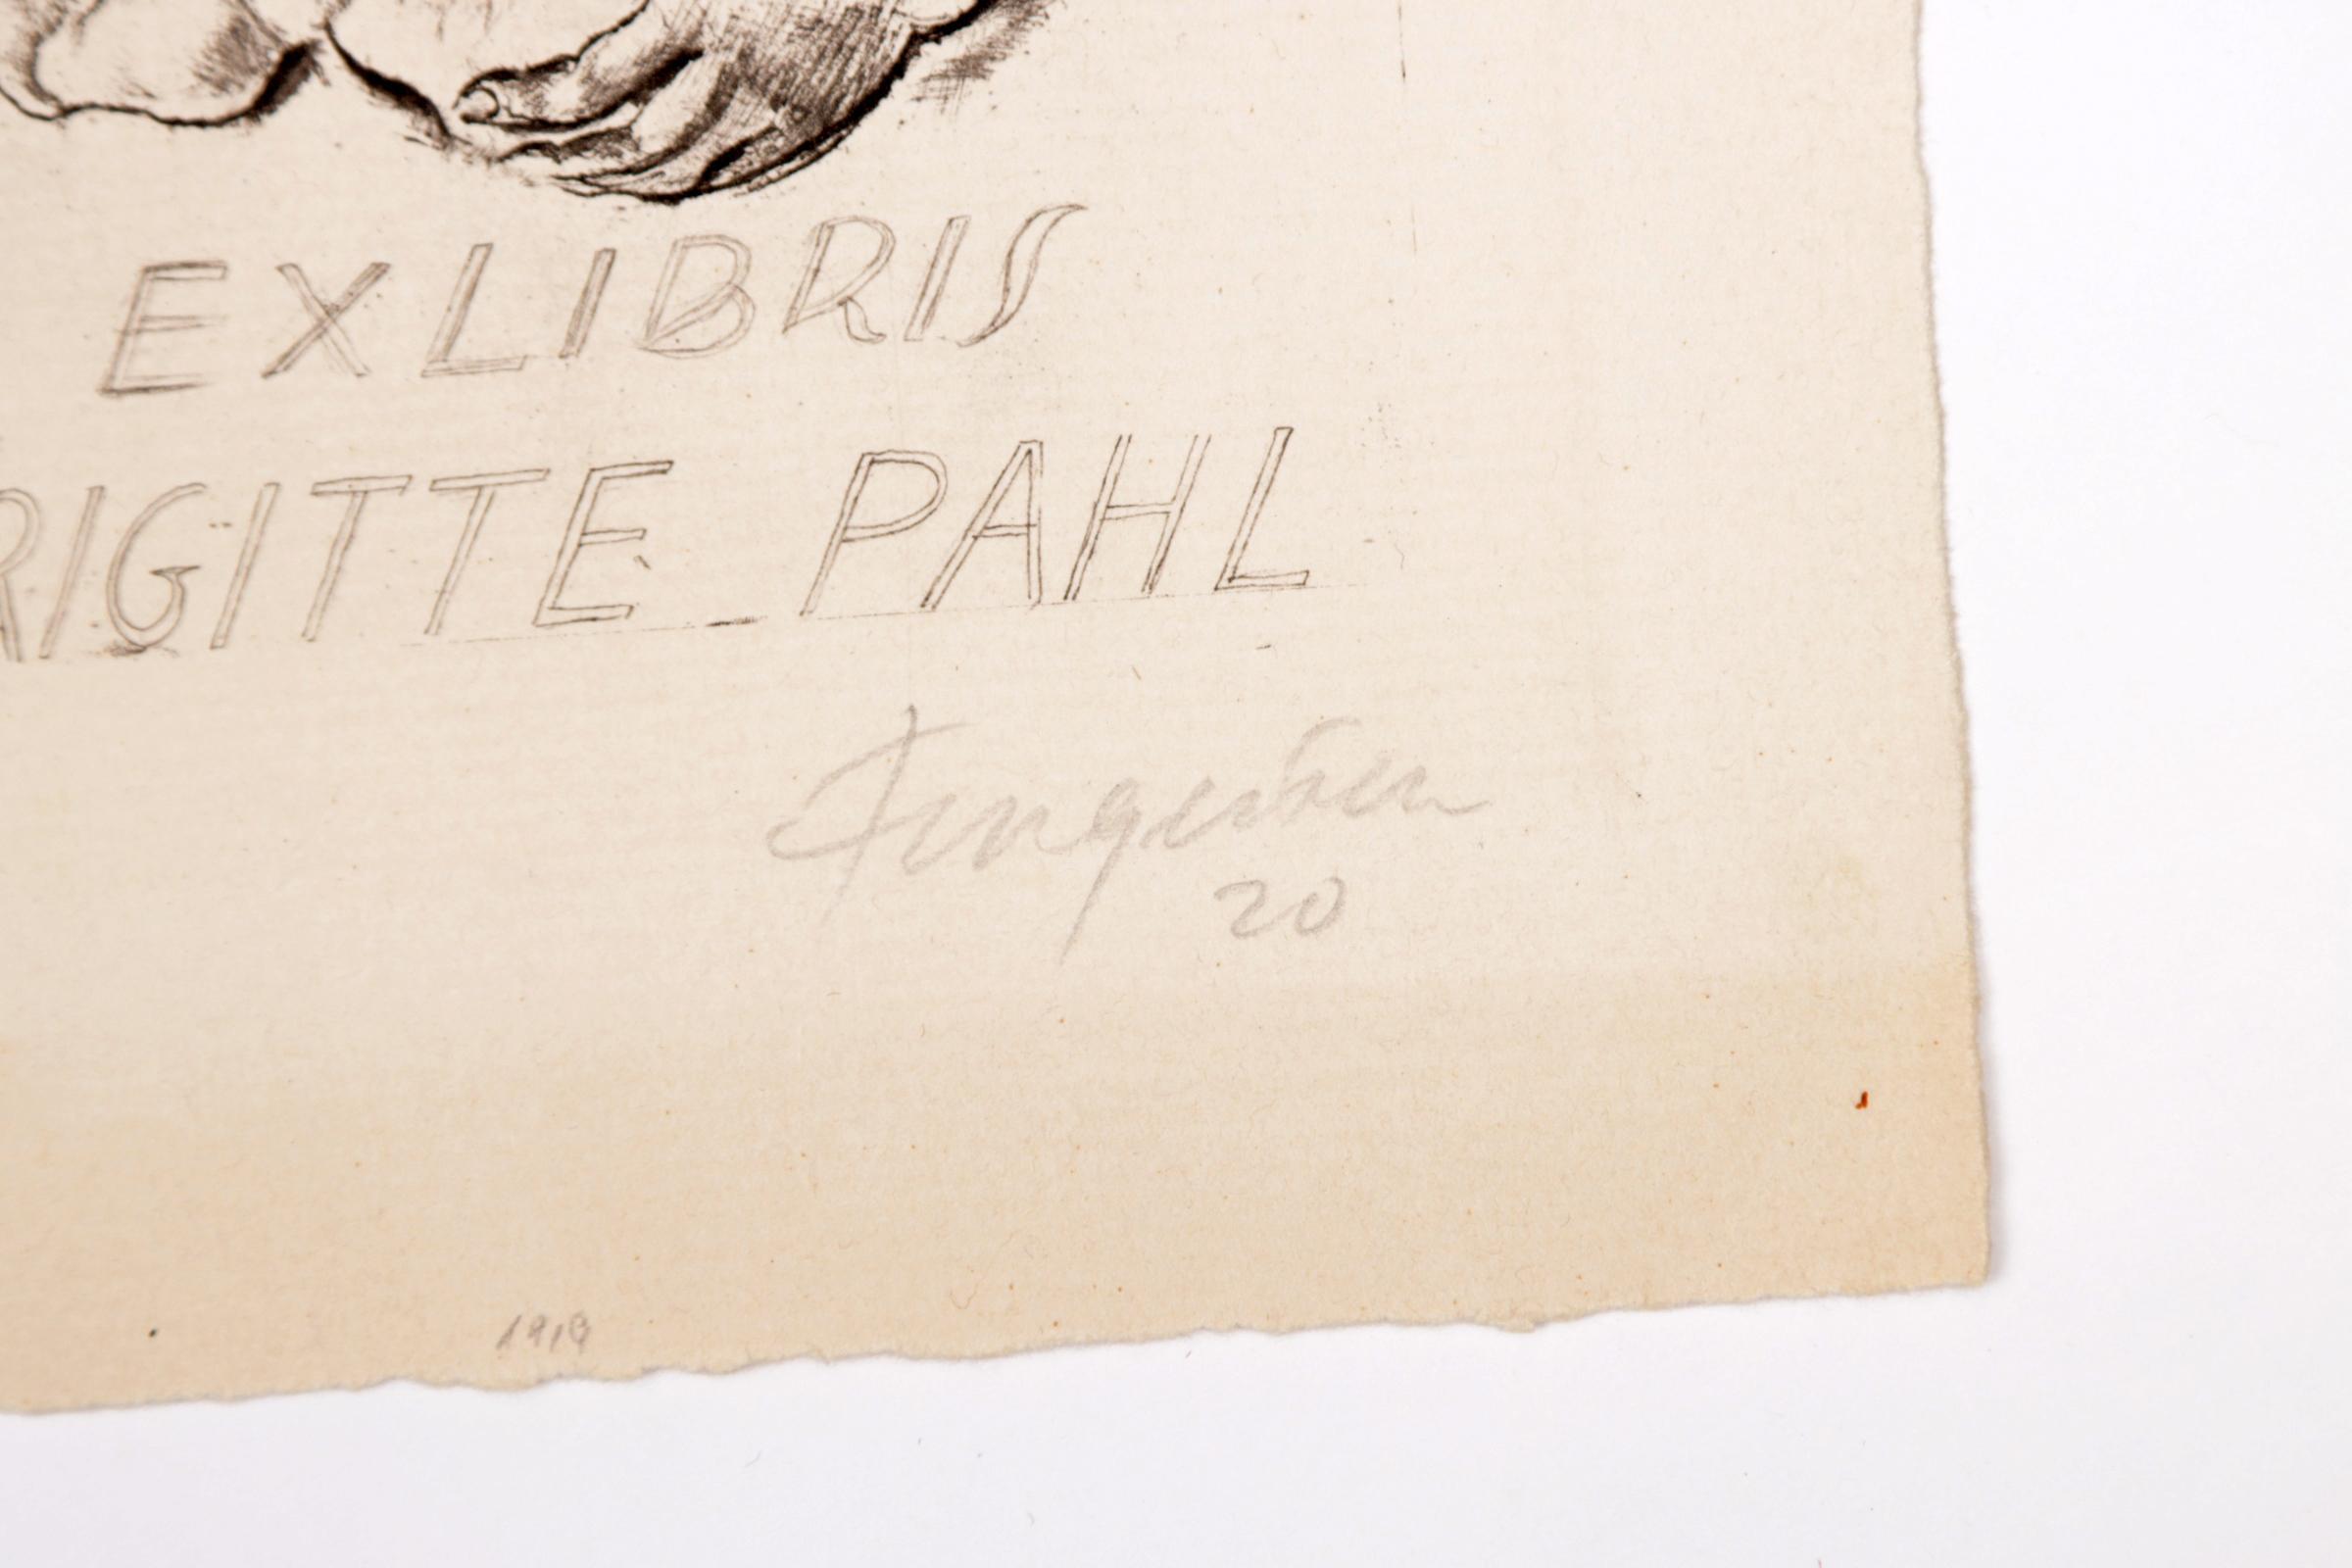 EXLIBRIS
RIGITTE PAHL
Fingesten
20